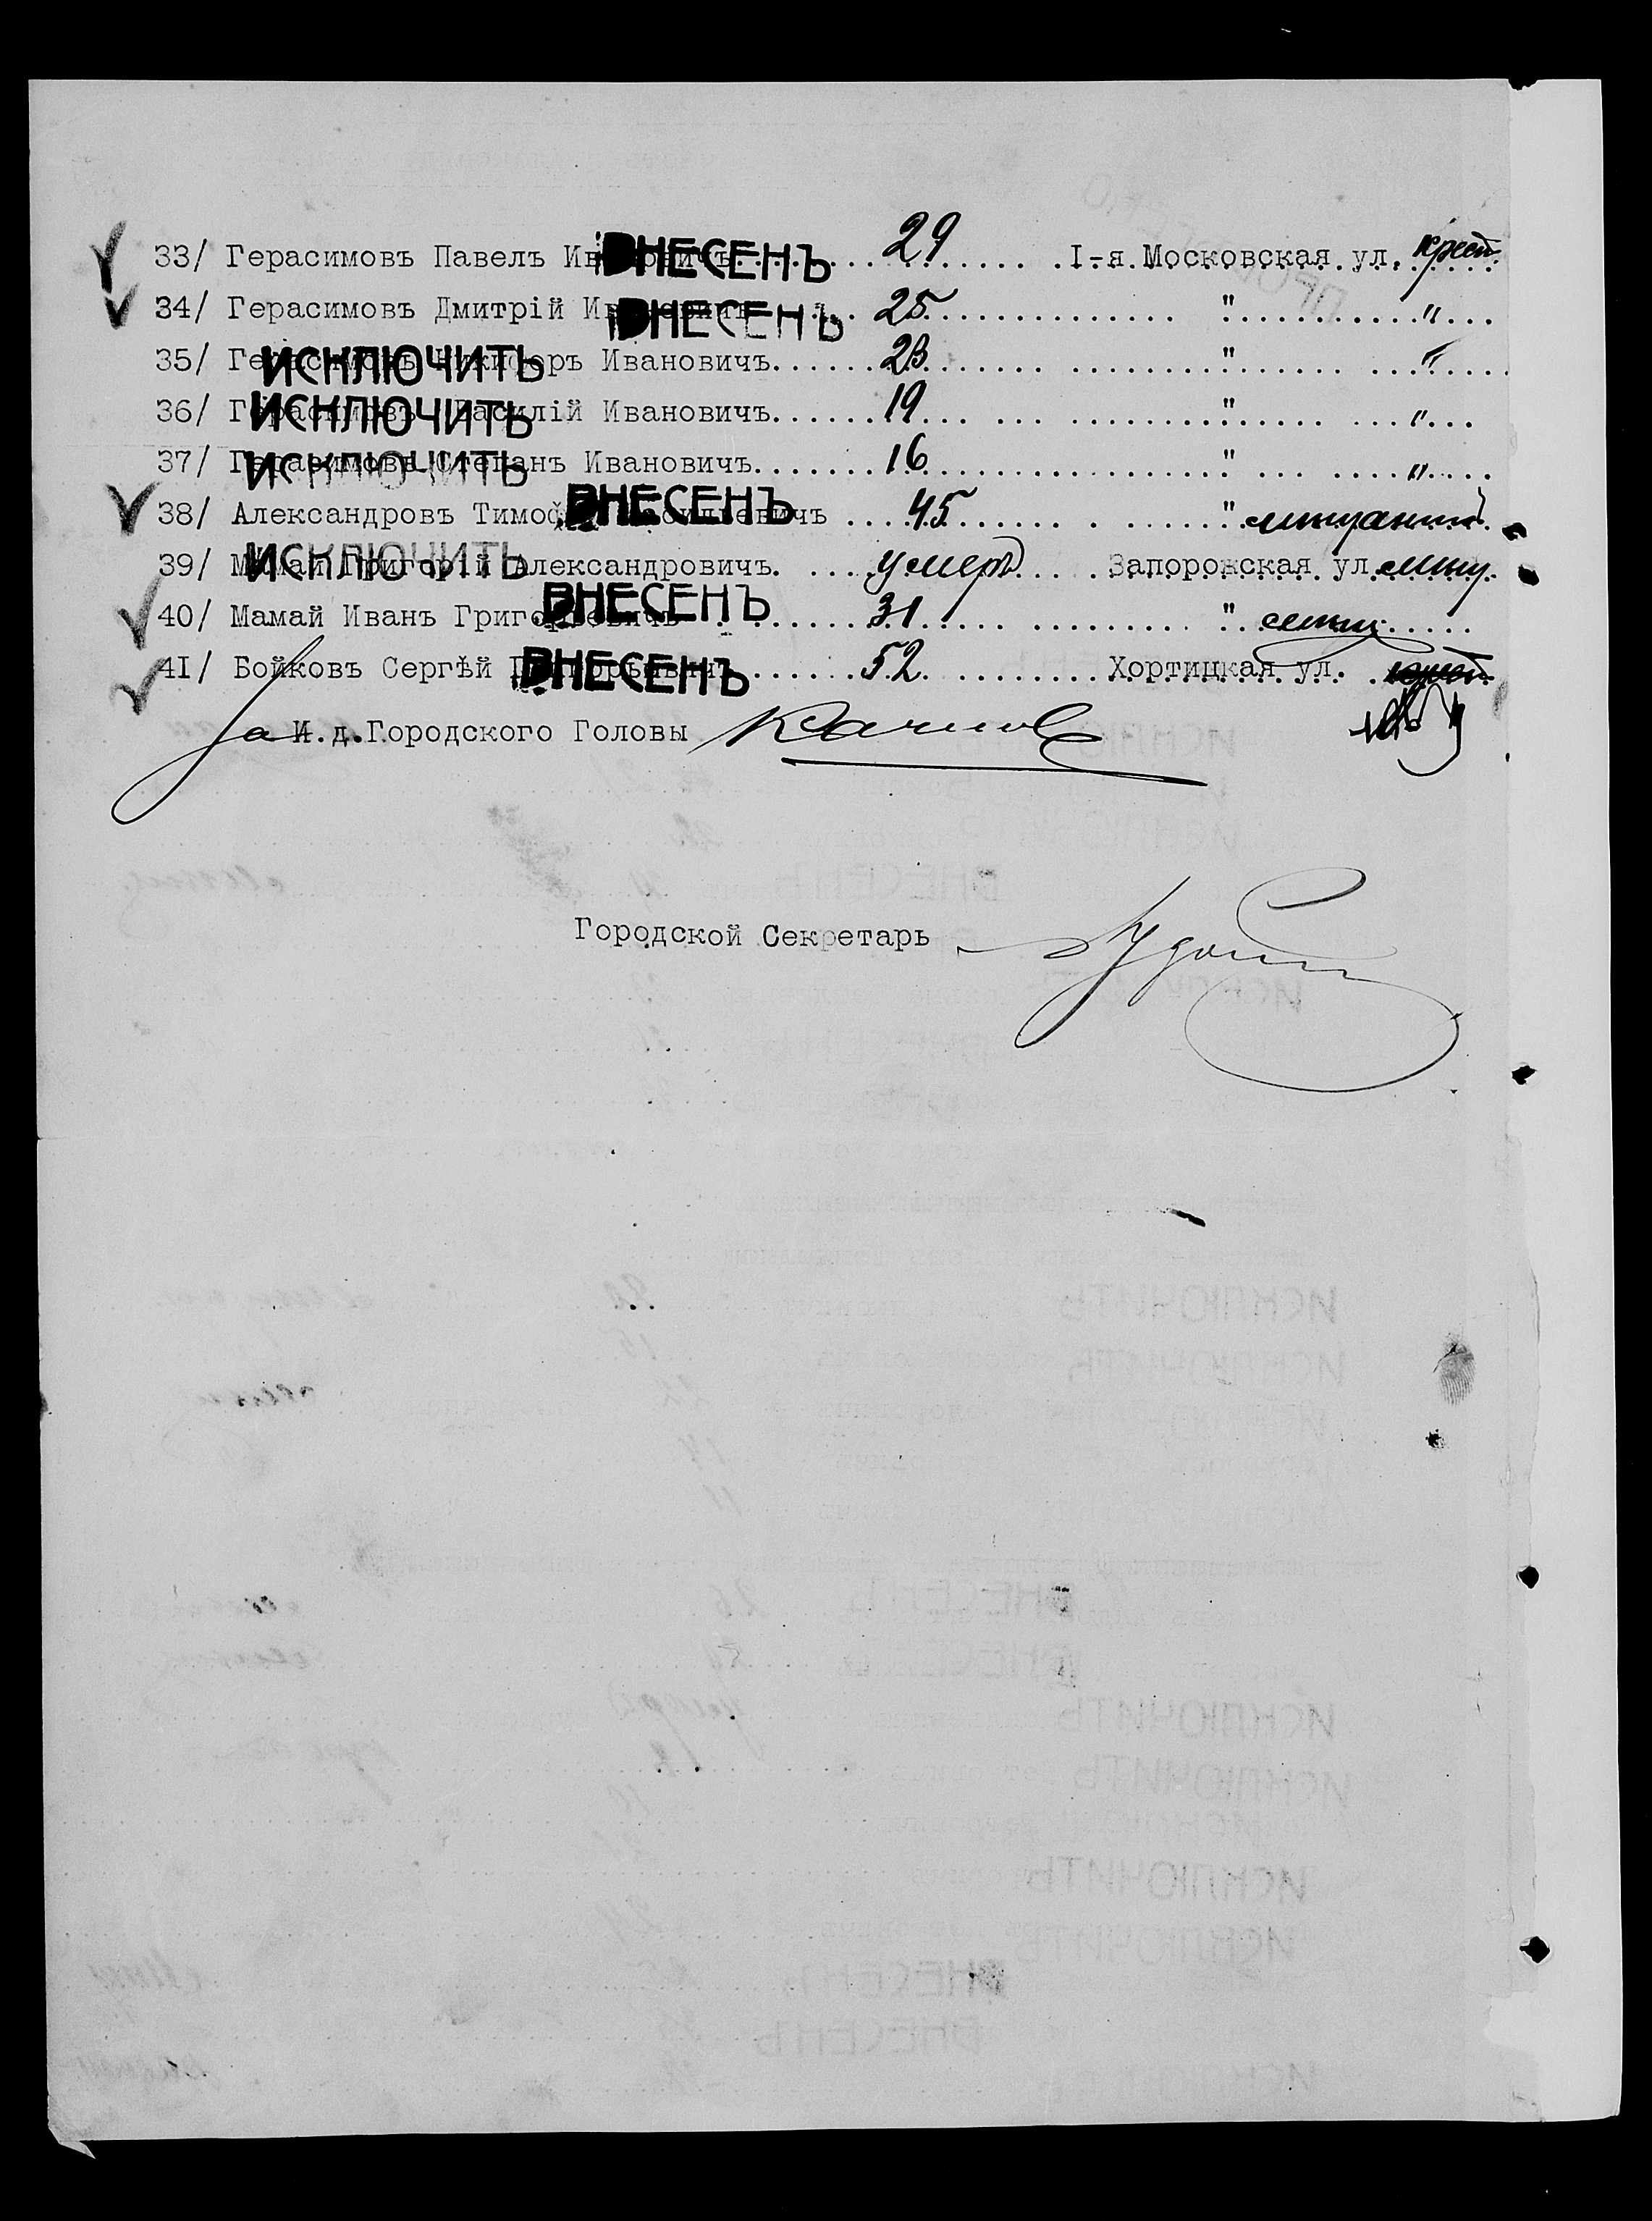 33/ Герасимовъ Павелъ Ивановичъ ВНЕСЕНЪ 29 I-я Московская ул. крест.
34/ Герасимовъ Дмитрій Ивановичъ ВНЕСЕНЪ 25 " "
35/ Герасимовъ Никифоръ Ивановичъ ИСКЛЮЧИТЬ 23 " "
36/ Герасимовъ Василій Ивановичъ ИСКЛЮЧИТЬ 19 " "
37/ Герасимовъ Степанъ Ивановичъ ИСКЛЮЧИТЬ 16 " "
38/ Александровъ Тимофей ВНЕСЕНЪ 45 " мещанинъ
39/ Мамай Григорій Александровичъ ИСКЛЮЧИТЬ умеръ Запорожская ул. мещ.
40/ Мамай Иванъ Григорьевичъ ВНЕСЕНЪ 31 "
41/ Бойковъ Сергѣй Григорьевичъ ВНЕСЕНЪ 52 Хортицкая ул.
За И.д. Городского Головы
Городской Секретарь